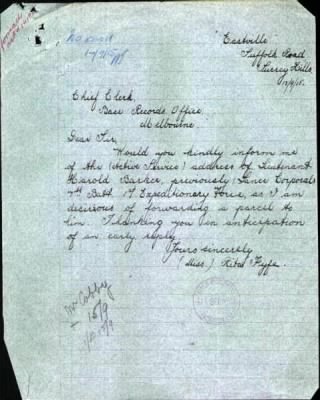 Eastville
Suffolk Road
Surrey Hills
Chief Clerk,
Base Records Office,
Melbourne.
Dear Sir,
Would you kindly inform me
of the (Active Service) address of Lieutenant
Harold Barker, previously Lance Corporal
7th Batt. 1st Expeditionary Force, as I am
desirous of forwarding a parcel to
him. Thanking you in anticipation
of an early reply
Yours sincerely
(Miss.) Rita Fyffe.
Mr
15/9